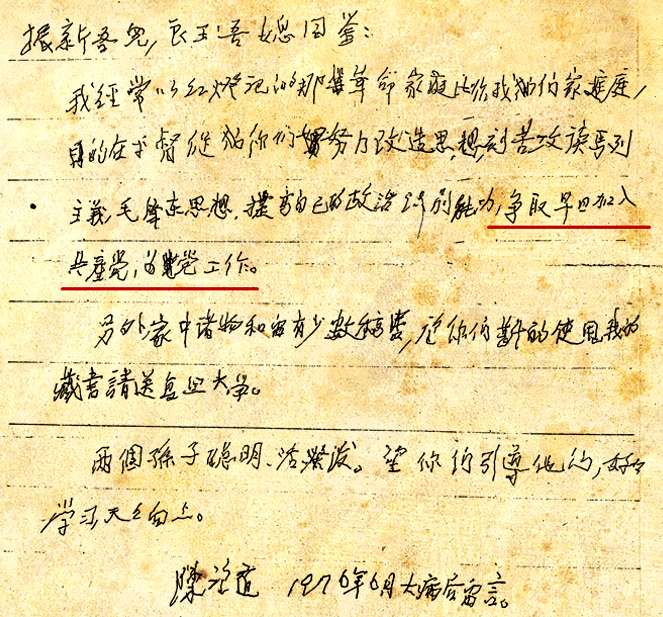 振新吾儿,良玉吾媳同鉴:
我經常以红燈记的那样革命家庭比给我们的家庭,
目的在于督促你们努力改造思想,刻苦攻读马列
主義毛泽东思想,提高自己的政治识别能力,争取早日加入
共產党,为党工作。
另外家中诸物和留有少数,你们的使用我的
藏書請送复旦大学。
两個孫子聪明、活泼。望你们引導他们,好好
学习天天向上。
陳望道 1976年6月大病后留言。